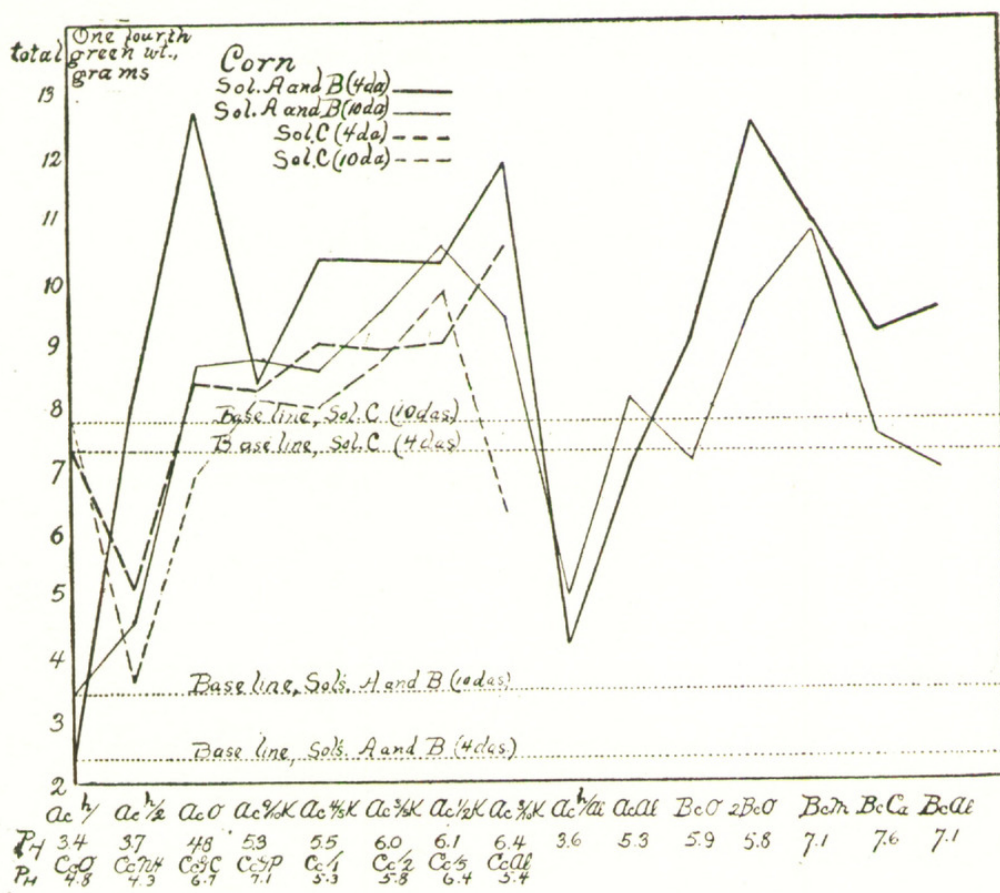 One fourth
total green wt.,
grams
Corn
Sol. A and B (4da)
Sol. A and B (10da)
Sol. C (4da)
Sol. C (10da)
13
12
11
10
9
8
7
6
5
4
3
2
Base line, Sol. C (10das)
Base line, Sol. C (4das)
Base line, Sols. A and B (10das)
Base line, Sols. A and B (4das.)
Ac h/1 Ac h/2 AcO Ac 9/10K Ac 4/5K Ac 3/5K Ac 1/2K Ac 3/10K Ac h/Al AcAl BcO 2BcO BcM BcCa BcAl
PH 3.4 3.7 48 5.3 5.5 6.0 6.1 6.4 3.6 5.3 5.9 5.8 7.1 7.6 7.1
CcO Cc/1 Cc/2 Cc/5 CcAl
PH 4.8 4.3 6.7 7.1 5.3 5.8 6.4 5.4